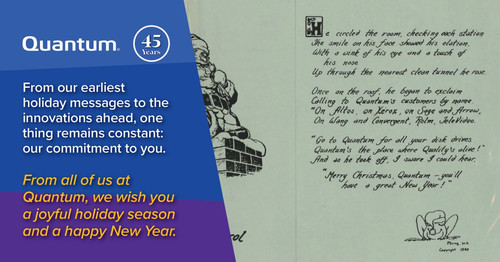 Quantum
45
Years
From our earliest
holiday messages to the
innovations ahead, one
thing remains constant:
our commitment to you.
From all of us at
Quantum, we wish you
a joyful holiday season
and a happy New Year.
rol
He circled the room, checking each station
The smile on his face showed his elation.
With a wink of his eye and a touch of
his nose
Up through the nearest clean tunnel he rose.
Once on the roof, he began to exclaim
Calling to Quantum's customers by name.
"On Altos, on Xerox, on Sage and Arrow,
On Wang and Convergent, Rolm, Televideo.
"Go to Quantum for all your disk drives
Quantum's the place where Quality's alive!"
And as he took off, I swore I could hear,
"Merry Christmas, Quantum - you'll
have a great New Year!"
Copyright